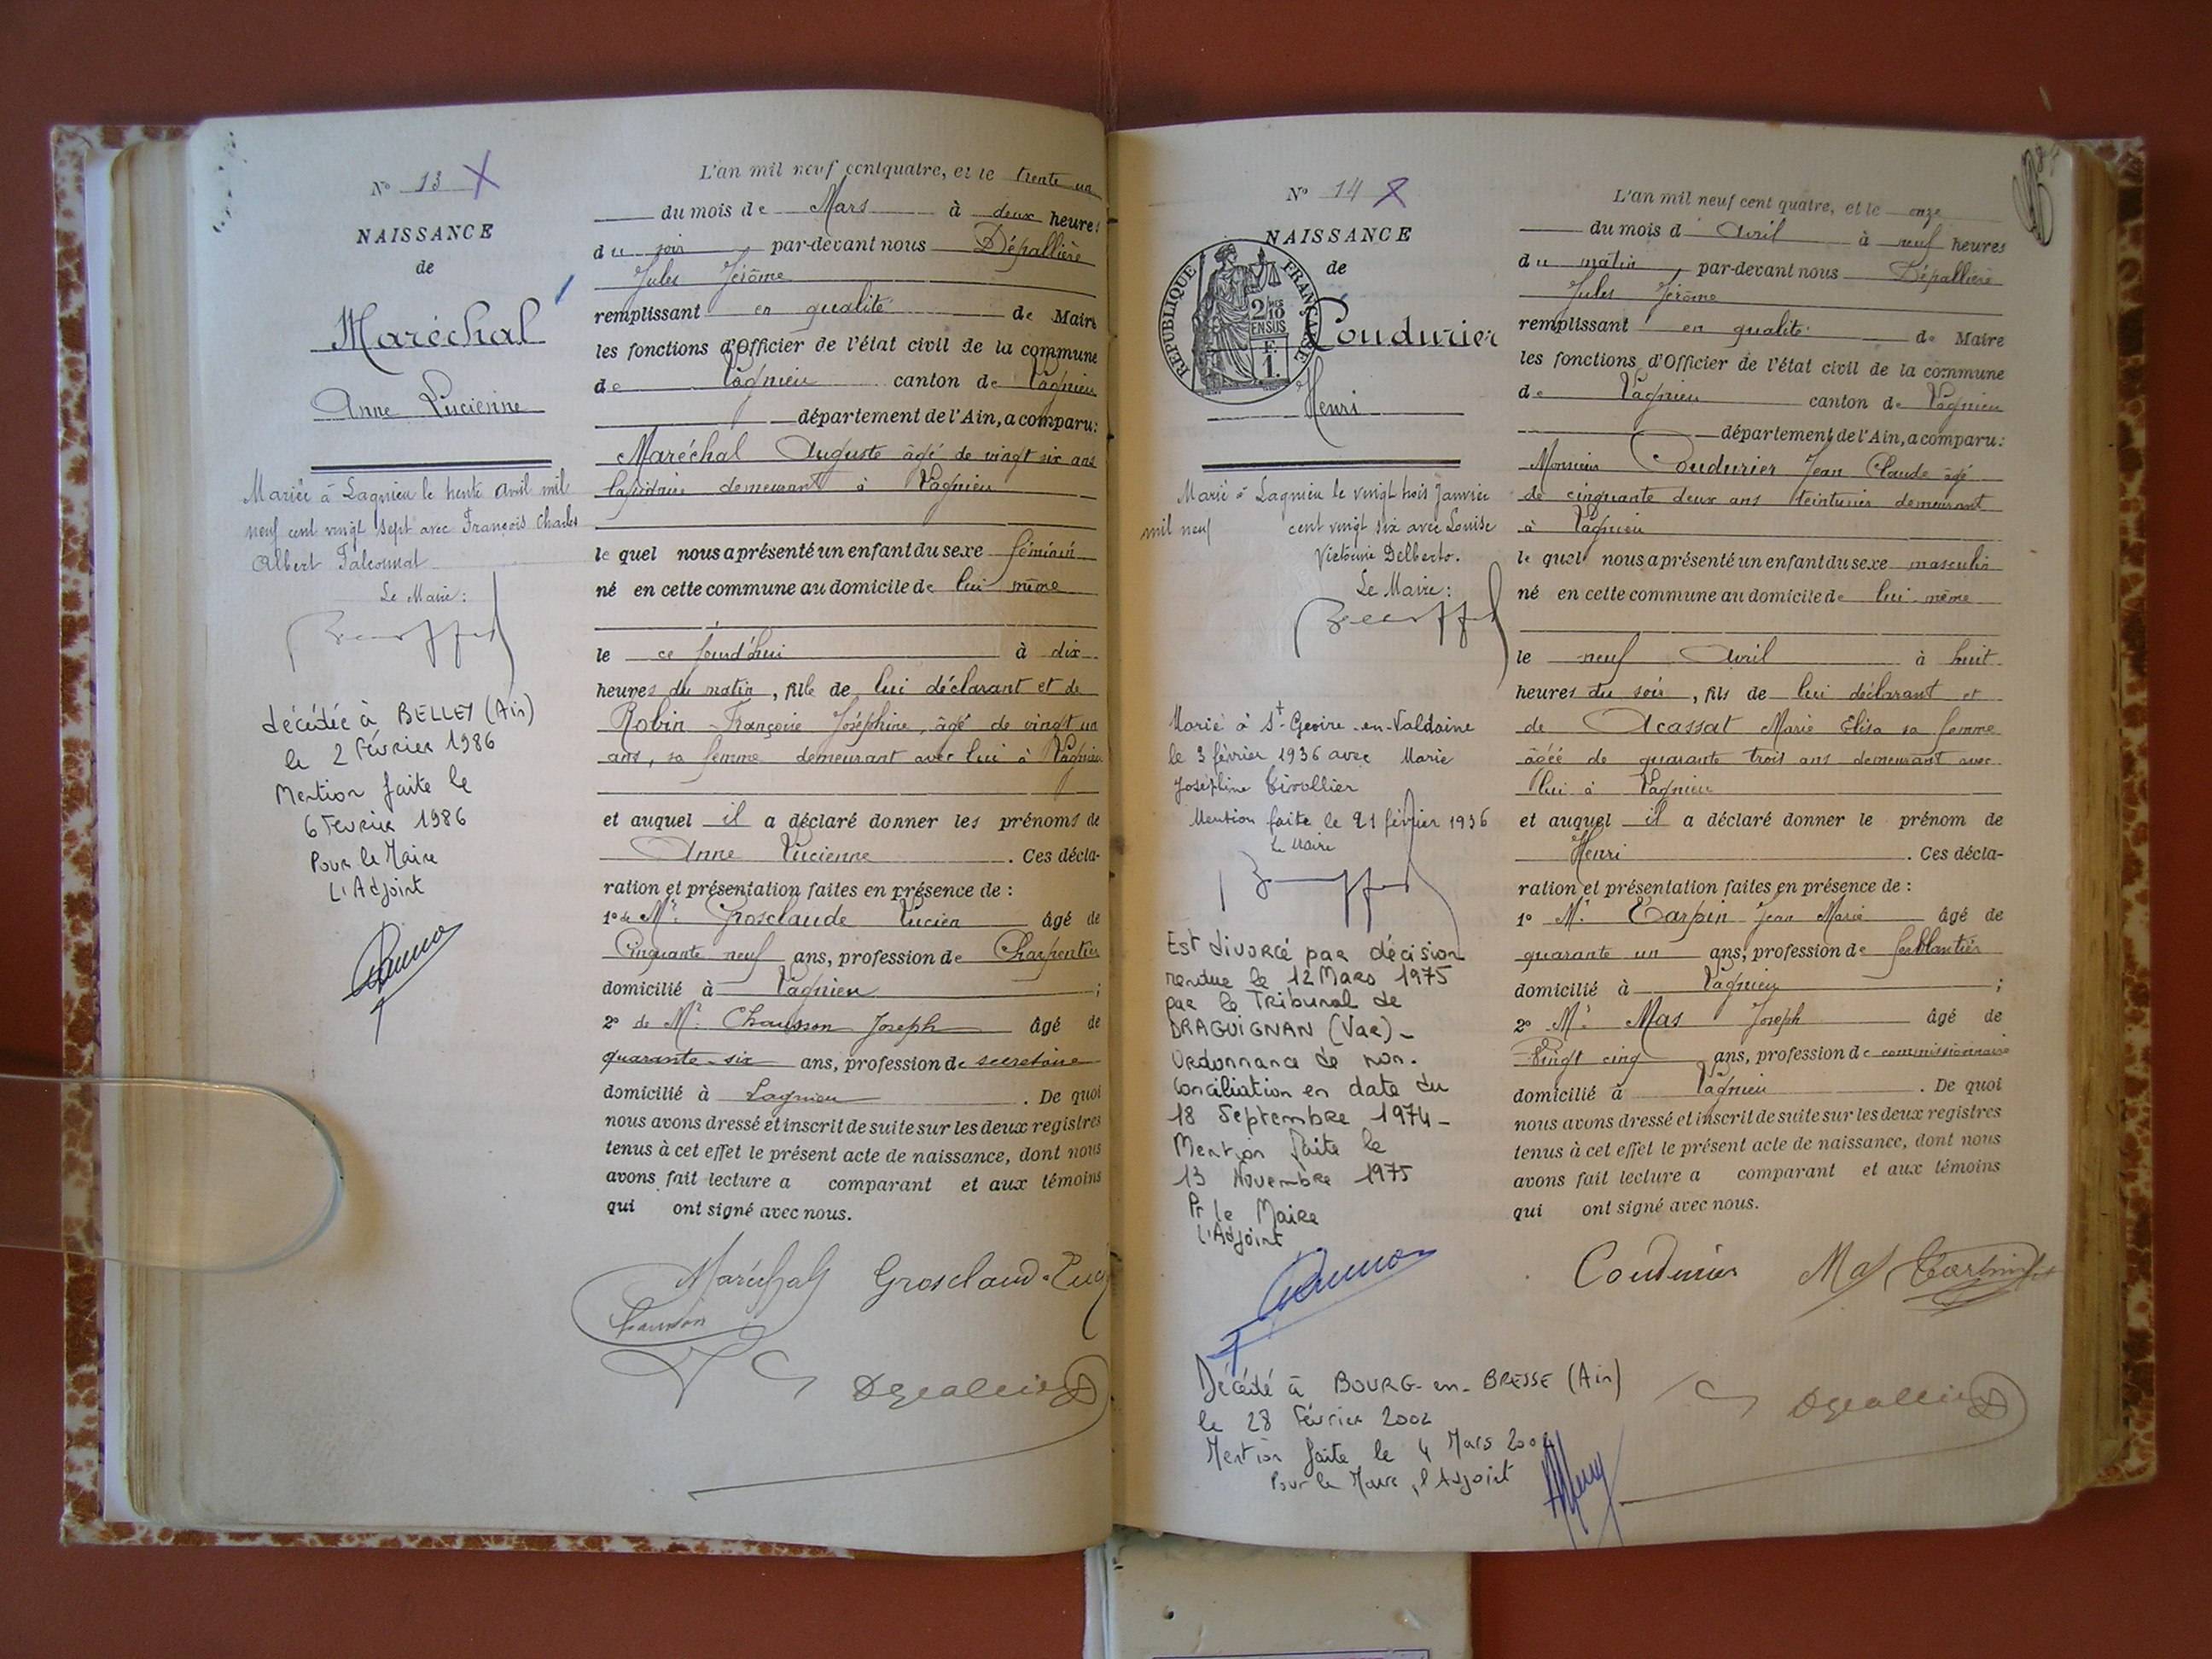 N° 13 X
NAISSANCE
de
Maréchal
Anne Lucienne
Mariée à Lagnieu le trente avril mil
neuf cent vingt sept avec François Charles
Albert Falconnat
Le Maire :
décédée à BELLEY (Ain)
le 2 Février 1986
Mention faite le
6 Fevrier 1986
Pour le Maire
L'Adjoint
L'an mil neuf cent quatre, et le trente un
du mois de Mars à deux heures
du soir par-devant nous Dépallière
Jules Jérôme
remplissant en qualité de Maire
les fonctions d'Officier de l'état civil de la commune
de Lagnieu canton de Lagnieu
département de l'Ain, a comparu :
Maréchal Auguste âgé de vingt six ans
lapidaire demeurant à Lagnieu
le quel nous a présenté un enfant du sexe féminin
né en cette commune au domicile de lui même
le ce jourd'hui à dix
heures du matin, fille de lui déclarant et de
Robin Françoise Joséphine, âgé de vingt un
ans, sa femme demeurant avec lui à Lagnieu
et auquel il a déclaré donner les prénoms de
Anne Lucienne . Ces décla-
ration et présentation faites en présence de :
1° de Mr. Grosclaude Lucien âgé de
Cinquante neuf ans, profession de Charpentier
domicilié à Lagnieu ;
2° de Mr. Chausson Joseph âgé de
quarante-six ans, profession de secretaire
domicilié à Lagnieu . De quoi
nous avons dressé et inscrit de suite sur les deux registres
tenus à cet effet le présent acte de naissance, dont nous
avons fait lecture a comparant et aux témoins
qui ont signé avec nous.
Maréchal Grosclaude
Chausson
N° 14 X
NAISSANCE
de
REPUBLIQUE FRANÇAISE
2/10 EN SUS
F. 1.
Coudurier
Henri
Marié à Lagnieu le vingt trois Janvier
mil neuf cent vingt six avec Louise
Victorine Delberto.
Le Maire :
Marié à St-Geoire-en-Valdaine
le 3 février 1936 avec Marie
Joséphine Tirollier
Mention faite le 21 février 1936
Le Maire
Est divorcé par décision
rendue le 12 Mars 1975
par le Tribunal de
DRAGUIGNAN (Var) -
Ordonnance de non-
Conciliation en date du
18 Septembre 1974 -
Mention faite le
13 Novembre 1975
Pr le Maire
L'Adjoint
Décédé à BOURG-en-BRESSE (Ain)
le 28 Février 2002
Mention faite le 4 Mars 2002
Pour le Maire, l'Adjoint
L'an mil neuf cent quatre, et le onze
du mois d'Avril à neuf heures
du matin, par-devant nous Dépallière
Jules Jérôme
remplissant en qualité de Maire
les fonctions d'Officier de l'état civil de la commune
de Lagnieu canton de Lagnieu
département de l'Ain, a comparu :
Monsieur Coudurier Jean Claude âgé
de cinquante deux ans teinturier demeurant
à Lagnieu
le quel nous a présenté un enfant du sexe masculin
né en cette commune au domicile de lui-même
le neuf Avril à huit
heures du soir, fils de lui déclarant et
de Acassat Marie Elisa sa femme
âgée de quarante trois ans demeurant avec
lui à Lagnieu
et auquel il a déclaré donner le prénom de
Henri . Ces décla-
ration et présentation faites en présence de :
1° Mr. Tarpin Jean Marie âgé de
quarante un ans, profession de ferblantier
domicilié à Lagnieu ;
2° Mr. Mas Joseph âgé de
Vingt cinq ans, profession de commissionnaire
domicilié à Lagnieu . De quoi
nous avons dressé et inscrit de suite sur les deux registres
tenus à cet effet le présent acte de naissance, dont nous
avons fait lecture a comparant et aux témoins
qui ont signé avec nous.
Coudurier Mas Tarpin